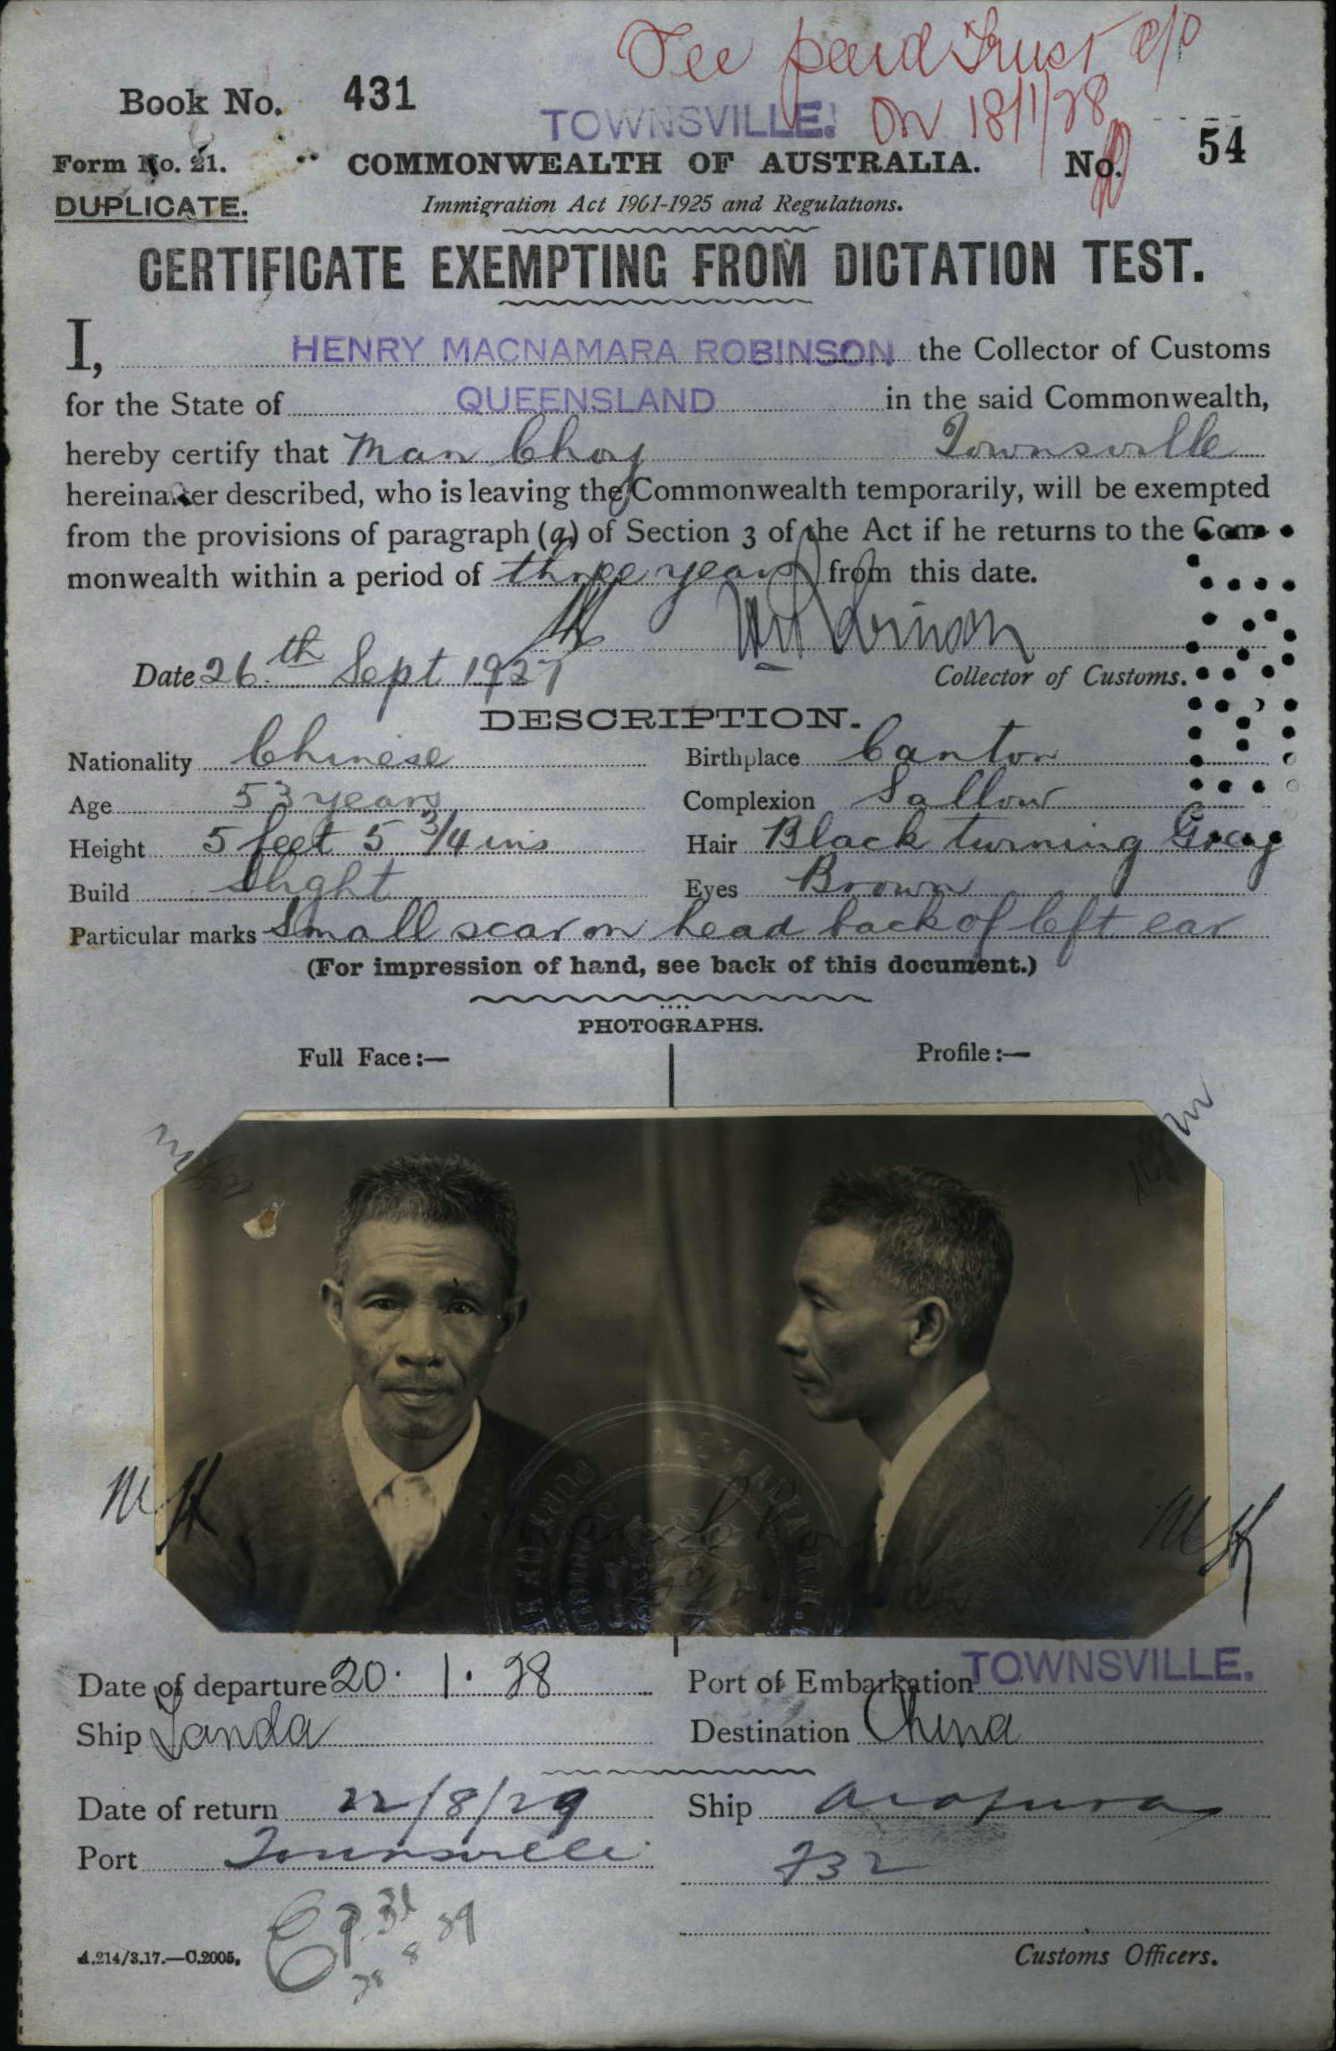 Fee paid Trust a/c
Book No. 431
TOWNSVILLE. On 18/1/28
Form No. 21. COMMONWEALTH OF AUSTRALIA. No. 54
DUPLICATE. Immigration Act 1901-1925 and Regulations.
CERTIFICATE EXEMPTING FROM DICTATION TEST.
I, HENRY MACNAMARA ROBINSON the Collector of Customs
for the State of QUEENSLAND in the said Commonwealth,
hereby certify that Man Choy Townsville
hereinafter described, who is leaving the Commonwealth temporarily, will be exempted
from the provisions of paragraph (a) of Section 3 of the Act if he returns to the Com-
monwealth within a period of three years from this date.
Date 26th Sept 1927
Collector of Customs.
DESCRIPTION.
Nationality Chinese Birthplace Canton
Age 53 years Complexion Sallow
Height 5 feet 5 3/4 ins Hair Black turning Grey
Build Slight Eyes Brown
Particular marks Small scar on head back of left ear
(For impression of hand, see back of this document.)
PHOTOGRAPHS.
Full Face:— Profile:—
Date of departure 20. 1. 28 Port of Embarkation TOWNSVILLE.
Ship Tanda Destination China
Date of return 22/8/29 Ship Arafura
Port Townsville 732
A.214/3.17.—C.2005. Customs Officers.